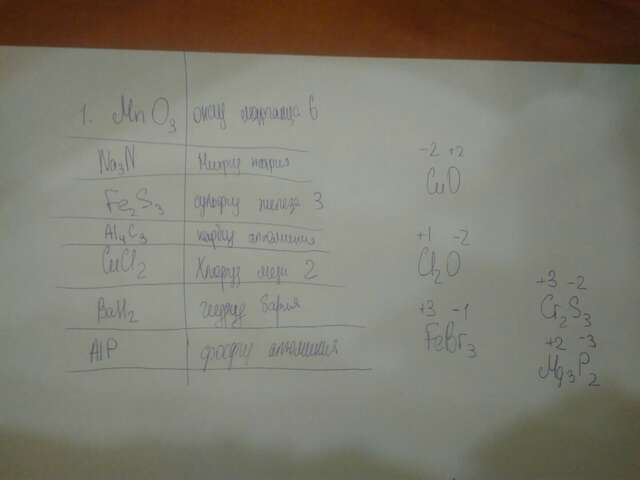 1. MnO₃ оксид марганца 6
Na₃N Нитрид натрия
Fe₂S₃ сульфид железа 3
Al₄C₃ карбид алюминия
CuCl₂ Хлорид меди 2
BaH₂ гидрид бария
AlP фосфид алюминия
-2 +2
CuO
+1 -2
Cl₂O
+3 -1
FeBr₃
+3 -2
Cr₂S₃
+2 -3
Mg₃P₂